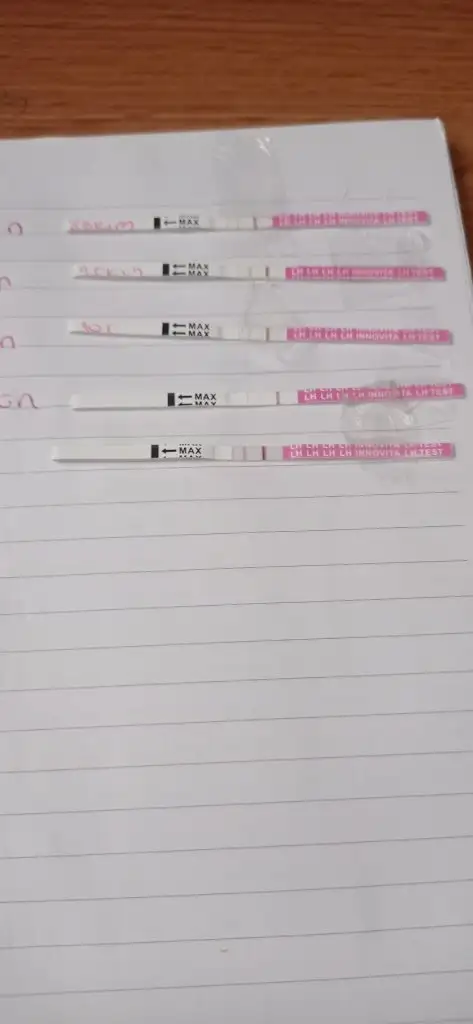 n 8 Ekim MAX LH LH LH LH INNOVITA LH TEST
n 9 Ekim MAX MAX LH LH LH LH INNOVITA LH TEST
n MAX MAX LH LH LH LH INNOVITA LH TEST
n MAX MAX LH LH LH LH INNOVITA LH TEST
MAX LH LH LH LH INNOVITA LH TEST